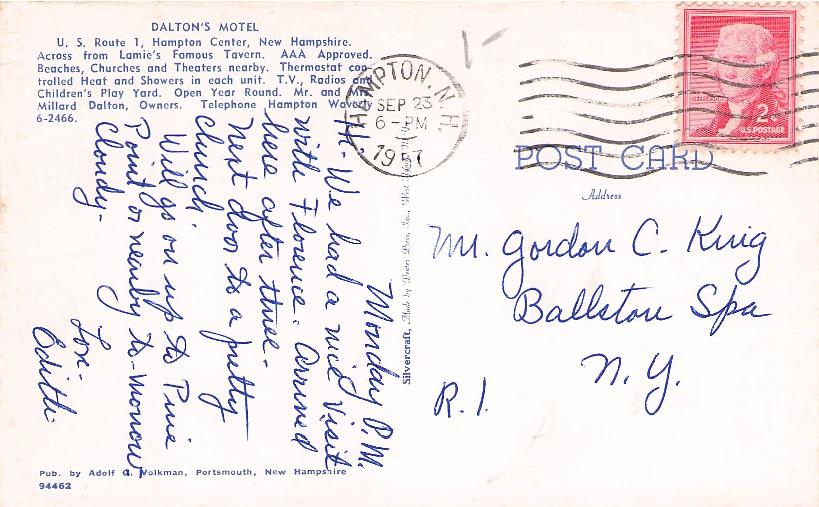 DALTON'S MOTEL
U. S. Route 1, Hampton Center, New Hampshire.
Across from Lamie's Famous Tavern. AAA Approved.
Beaches, Churches and Theaters nearby. Thermostat con-
trolled Heat and Showers in each unit. T.V., Radios and
Children's Play Yard. Open Year Round. Mr. and Mrs.
Millard Dalton, Owners. Telephone Hampton Waverly
6-2466.
Monday P.M.
Hi- We had a nice visit
with Florence. Arrived
here after three-
Next door to a pretty
church.
Will go on up to Pine
Point or nearby to-morrow
Cloudy-
Love-
Edith
Pub. by Adolf G. Volkman, Portsmouth, New Hampshire
94462
Silvercraft, Made by Dexter Press, Inc., West Nyack, N.Y.
HAMPTON, N.H.
SEP 23
6-PM
1957
JEFFERSON
2¢
U.S. POSTAGE
POST CARD
Address
Mr. Gordon C. King
Ballston Spa
N.Y.
R.1.